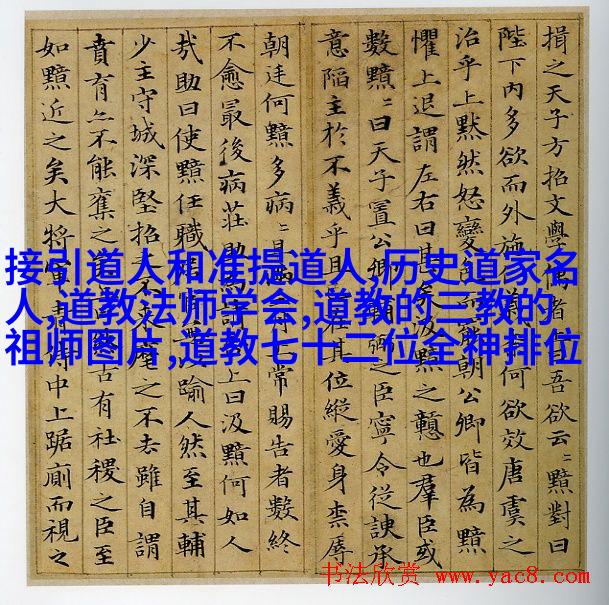 揖之天子方招文學儒者曰吾欲云〻黯對曰
陛下內多欲而外施義何欲效唐虞之
治乎上默然怒變朝公卿皆為黯
懼上退謂左右曰甚矣汲黯之戇也羣臣或
數黯〻曰天子置公卿之臣寧令從諛承
意陷主於不義乎且在其位縱愛身柰辱
朝廷何黯多病〻且滿常賜告者數終
不愈最後病莊助為上曰汲黯何如人
哉助曰使黯任職踰人然至其輔
少主守城深堅招之不來麾之不去雖自謂
賁育亦不能奪之古有社稷之臣至
如黯近之矣大將軍青侍中上踞廁而視之
接引道人和准提道人,历史道家名
人,道教法师学会,道教的三教的
祖师图片,道教七十二位全神排位
书法欣赏 www.yac8.com